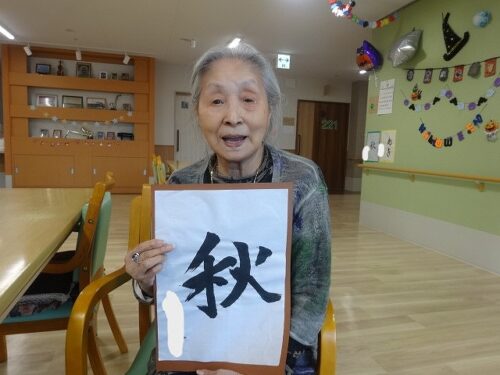 秋
221